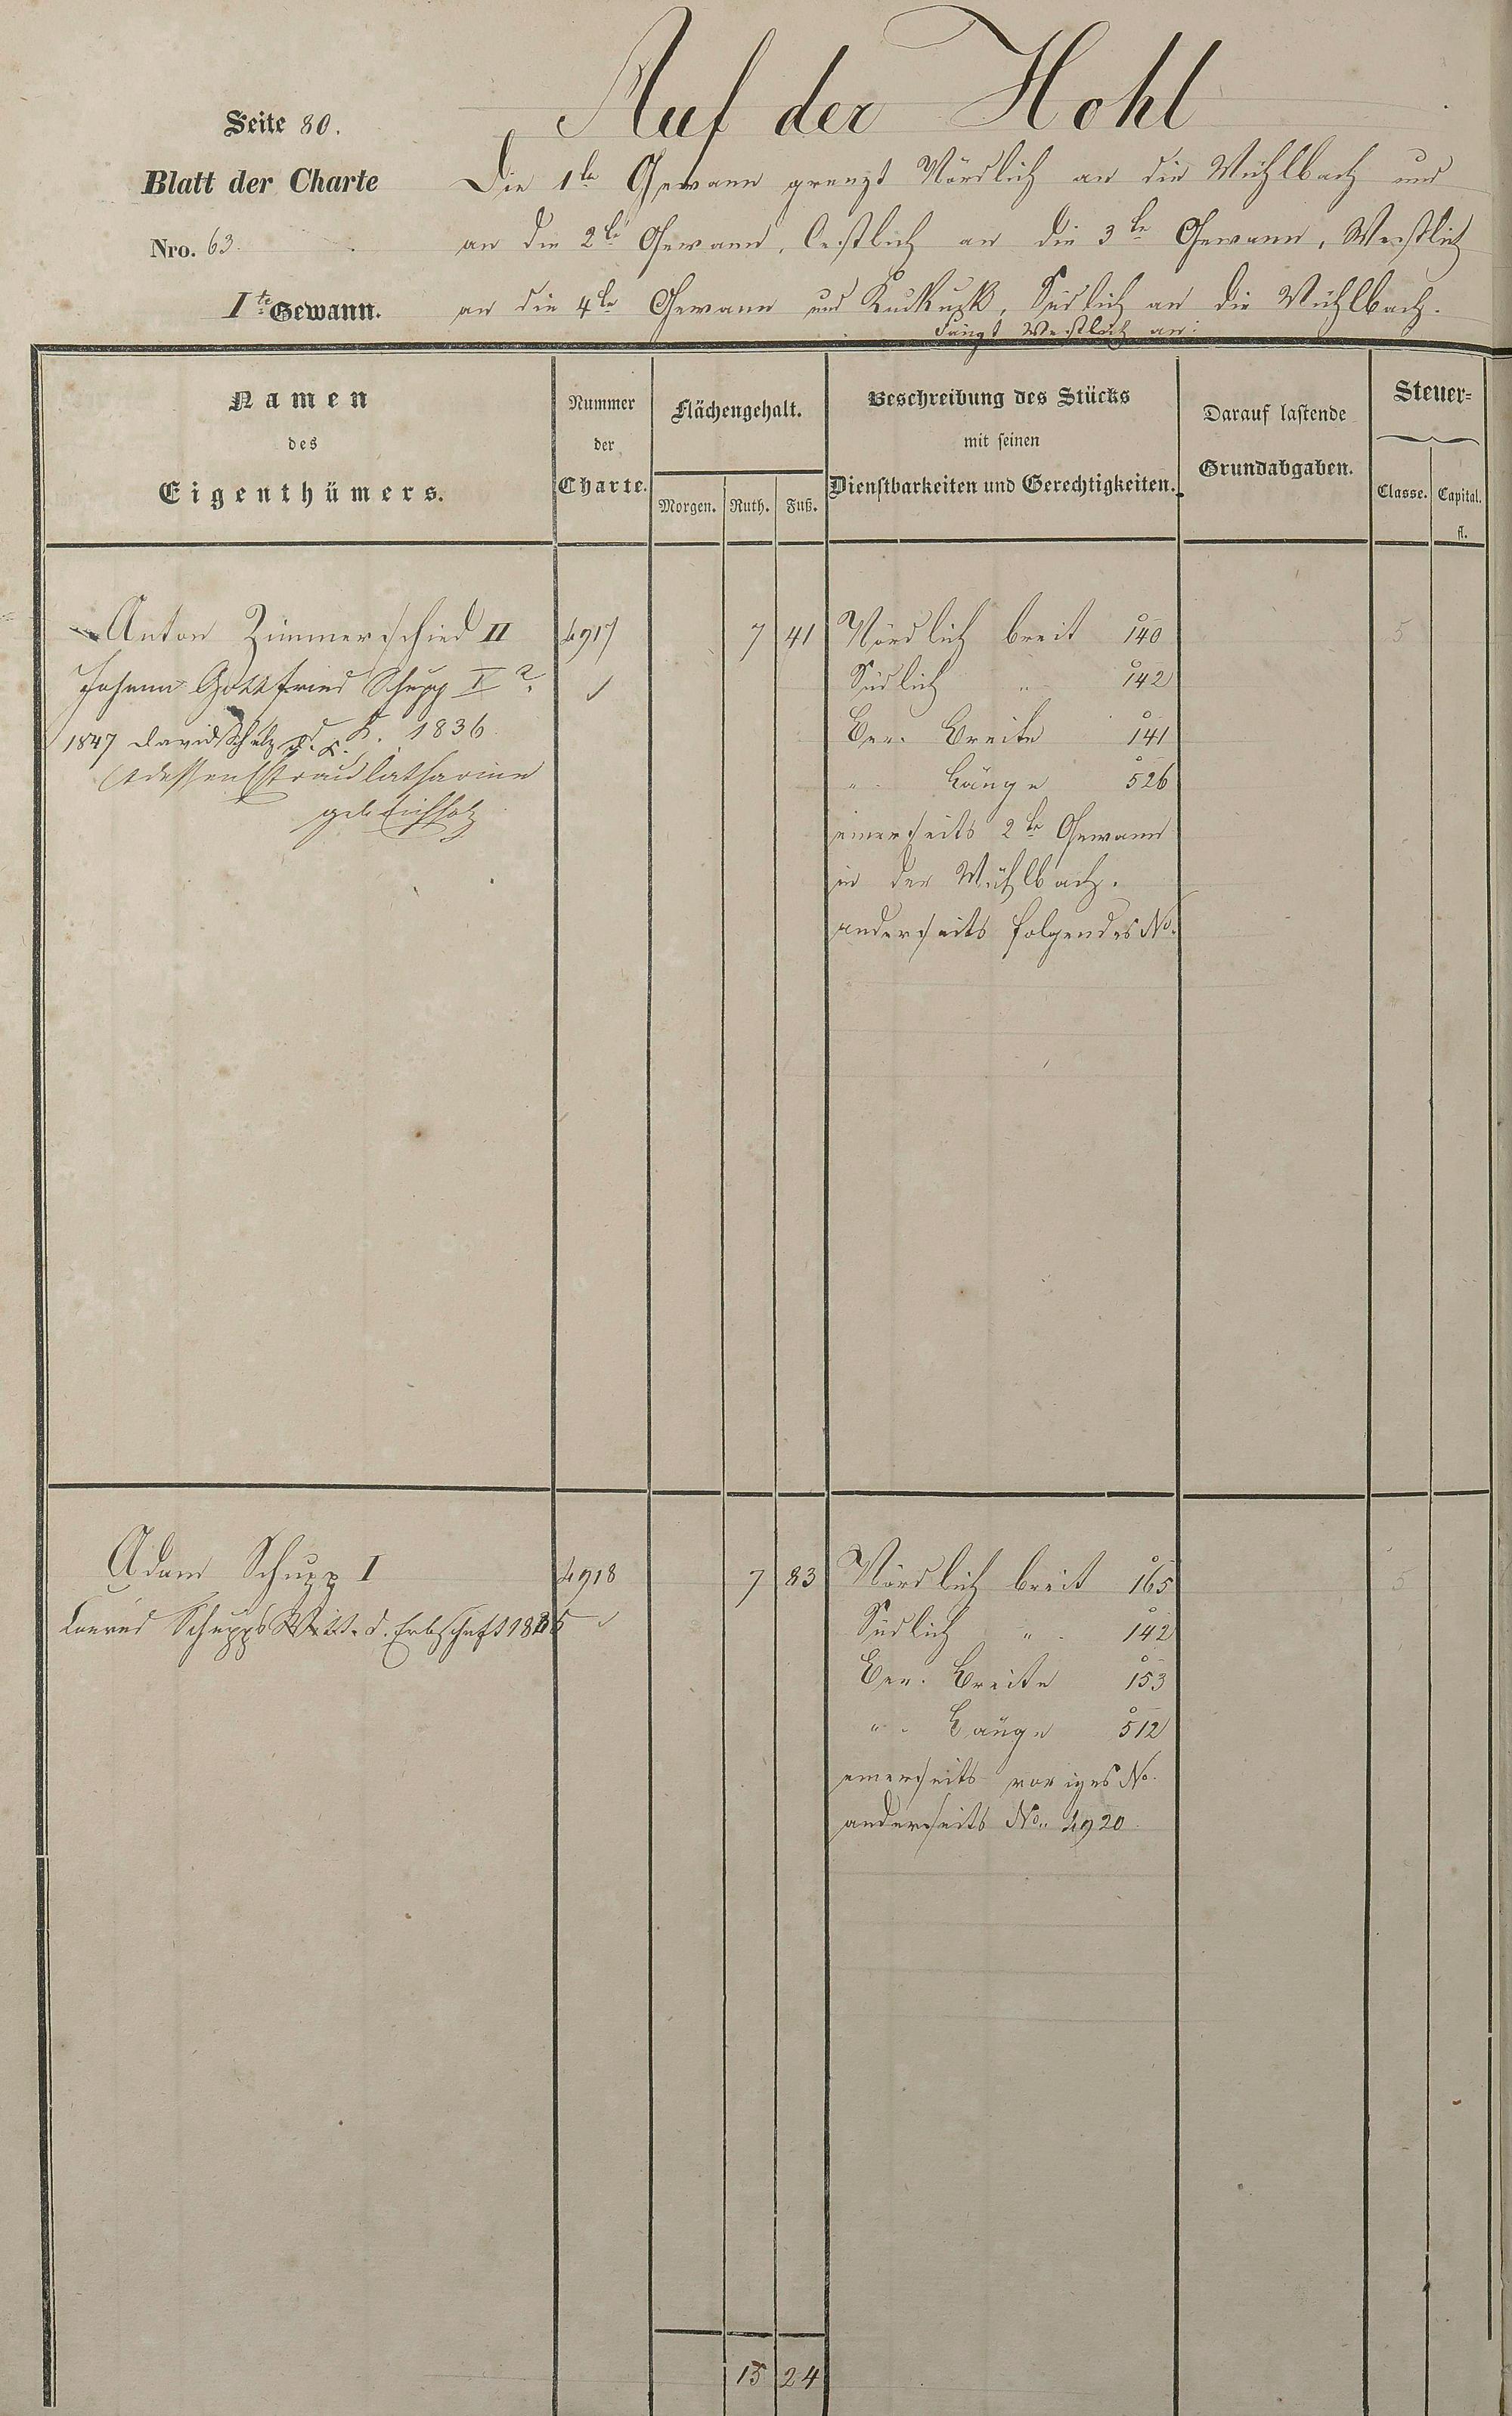 Auf der Hohl
Seite 80.
Blatt der Charte
Nro. 63.
I.te Gewann.
Die 1te Gewann grenzt Nördlich an die Mühlbach und
an die 2te Gewann, Oestlich an die 3te Gewann, Westlich
an die 4te Gewann und Kuckusk, Südlich an die Mühlbach.
Fängt Westlich an:
Namen
des
Eigenthümers.
Nummer
der
Charte.
Flächengehalt.
Morgen. Ruth. Fuß.
Beschreibung des Stücks
mit seinen
Dienstbarkeiten und Gerechtigkeiten.
Darauf lastende
Grundabgaben.
Steuer=
Classe. Capital.
fl.
Anton Zimmerschied II 4917 7 41 Nördlich breit 140 5
Johann Gottfried Schupp I
Südlich " 142
d. K. 1836
1847 David Schulz d. K.
Ger. Breite 141
dessen Catharine
" Länge 526
geb.
einerseits 2te Gewann
in der Mühlbach.
anderseits folgendes No.
Adam Schupp I 4918 7 83 Nördlich breit 165 5
Conrad Schupps Witt. d. Erbschaft
Südlich " 142
Ger. Breite 153
" Länge 512
einerseits voriges No.
anderseits No. 4920
15 24